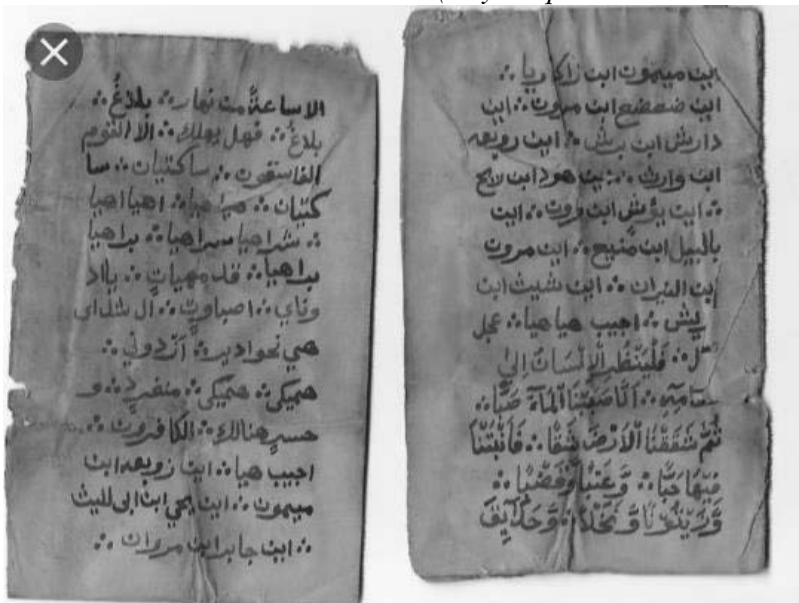 ابن ميمون ابن زاكريا ؞
ابن صحصح ابن مرون ؞ ابن
دارش ابن برش ؞ ابن رويعه
ابن وارث ؞ ابن هود ابن لايح
؞ ابن يؤنس ابن ورون ؞ ابن
بالبيل ابن منيح ؞ ابن مرون
ابن النيران ؞ ابن شيث ابن
ريش ؞ اجيب هيا هيا ؞ عجل
؞ فَلْيَنْظُرِ الْإِنْسَانُ إِلَىٰ
طعامه ؞ اَنَّا صَبَبْنَا ٱلْمَآءَ صَبًّا ؞
ثُمَّ شَقَقْنَا ٱلْأَرْضَ شَقًّا ؞ فَأَنْبَتْنَا
فِيهَا حَبًّا ؞ وَّعِنَبًا وَّقَضْبًا ؞
وَّزَيْتُوْنًا وَّنَخْلًا ؞ وَّحَدَآئِقَ
الا ساعةً من نهار ؞ بلاغٌ ؞
بلاغٌ ؞ فهل يهلك ؞ الا القوم
الفاسقون ؞ ساكتيان ؞ سا
كتيان ؞ هيا هيا ؞ اهيا اهيا
؞ شراهيا سراهيا ؞ براهيا
براهيا ؞ قد مهيات ؞ يا اد
وناي ؞ اصباوت ؞ ال شداى
هي نحوادير ؞ انزدوني ؞
هميكى ؞ هميكى ؞ منفرد ؞ و
خسر هنالك ؞ الكافرون ؞
اجيب هيا ؞ ابن زوبعه ابن
ميمون ؞ ابن يحي ابن ابى لليث
؞ ابن جابر ابن مروان ؞